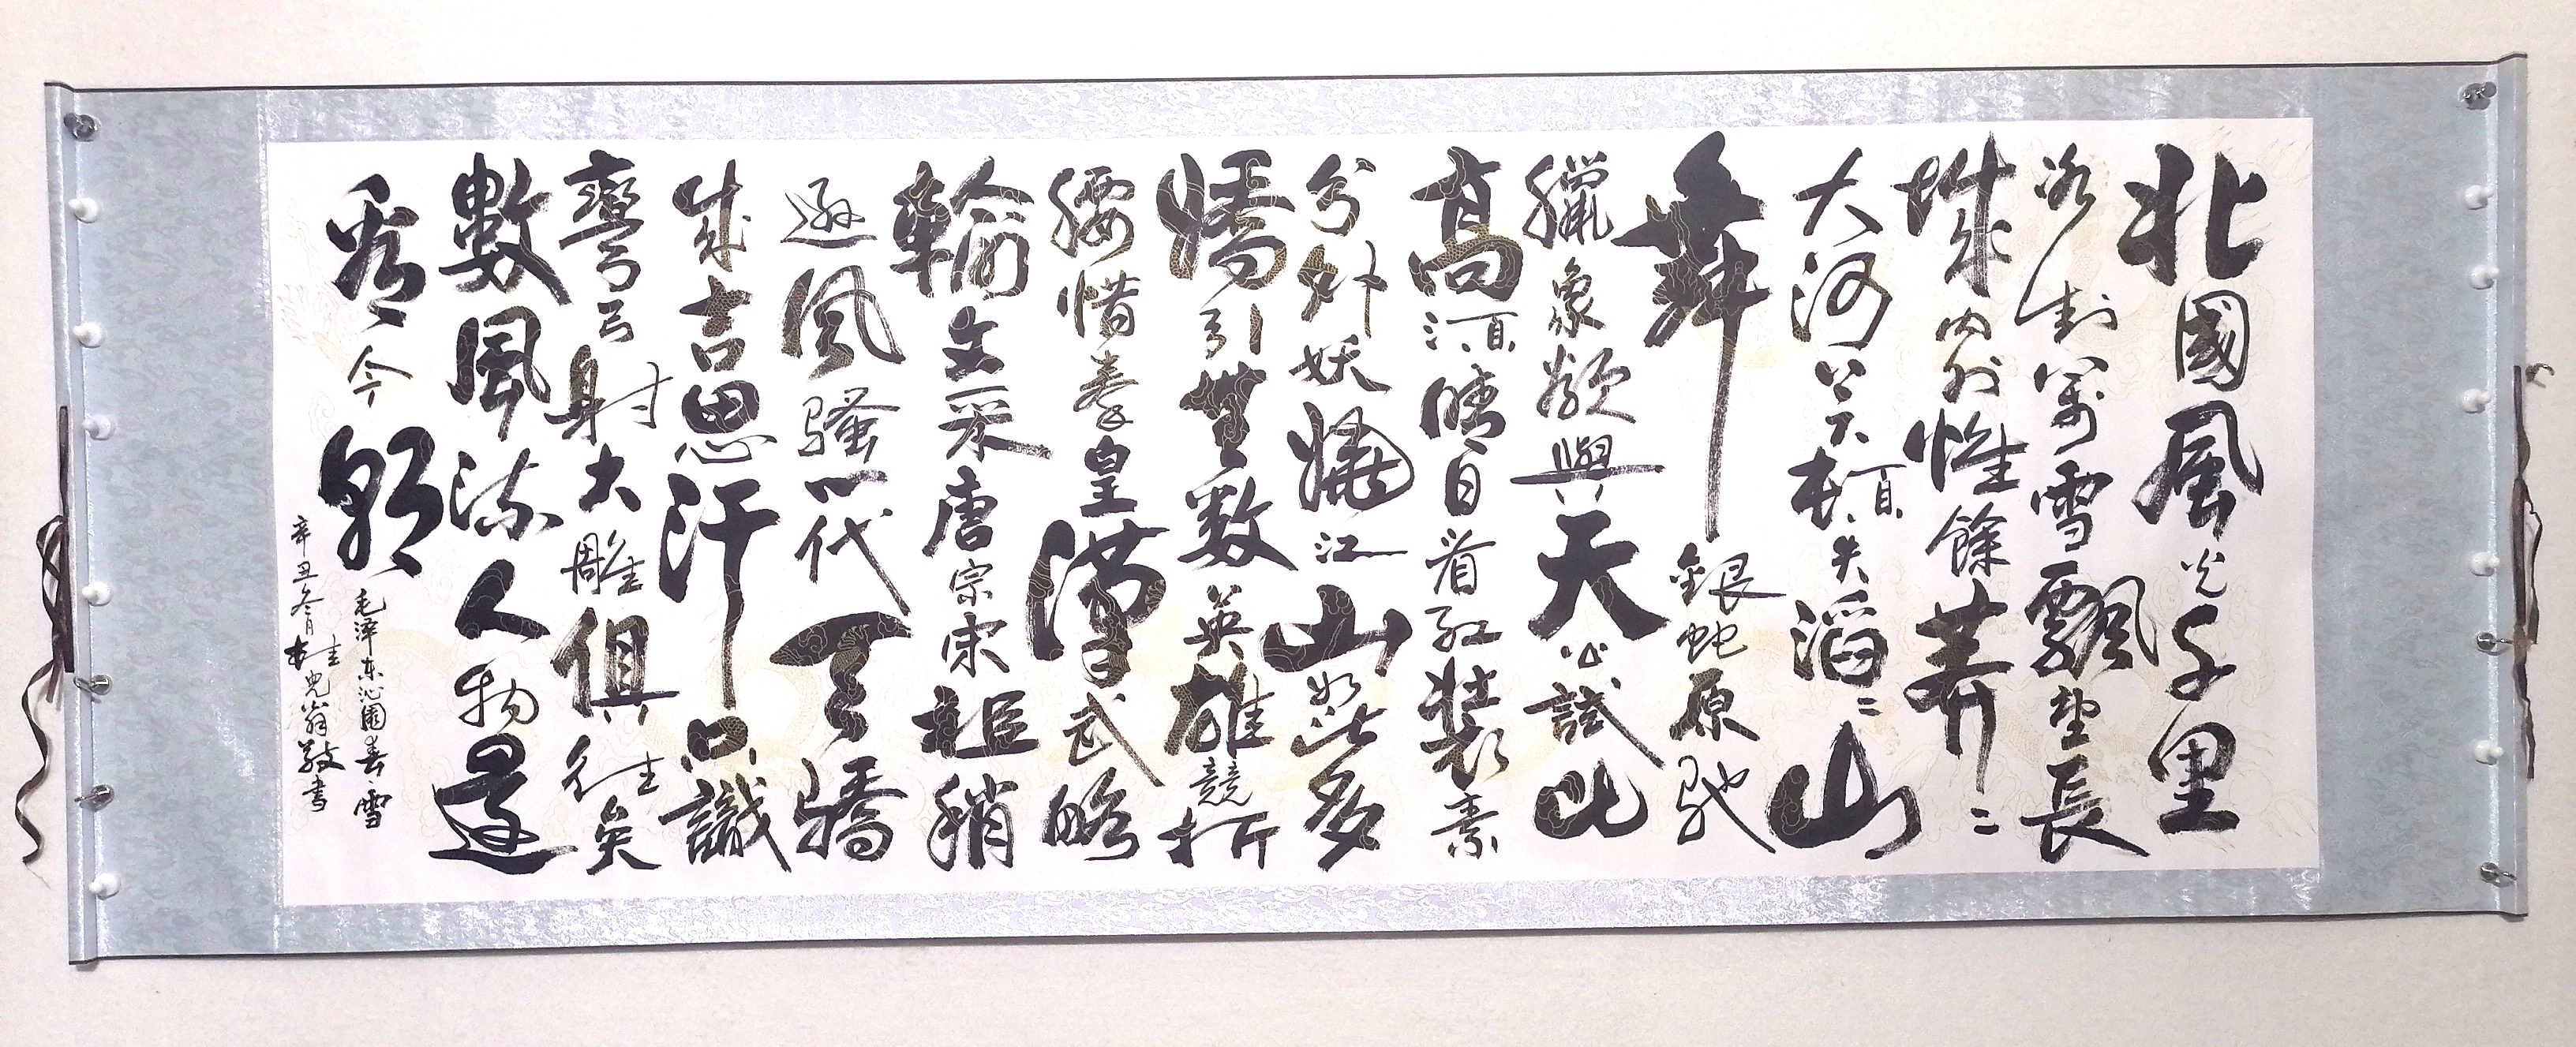 北國風光千里
冰封萬雪飄望長
城内外惟餘莽〻
大河上下頓失滔〻山
舞銀蛇原馳
臘象欲與天公試比
高須晴日看紅裝素
分外妖嬈江山如此多
嬌引無數英雄競折
腰惜秦皇漢武略
輸文采唐宗宋祖稍
遜風騷一代天驕
成吉思汗只識
彎弓射大雕俱往矣
數風流人物還
看今朝
毛澤东沁園春雪
辛丑冬月桂翁敬書